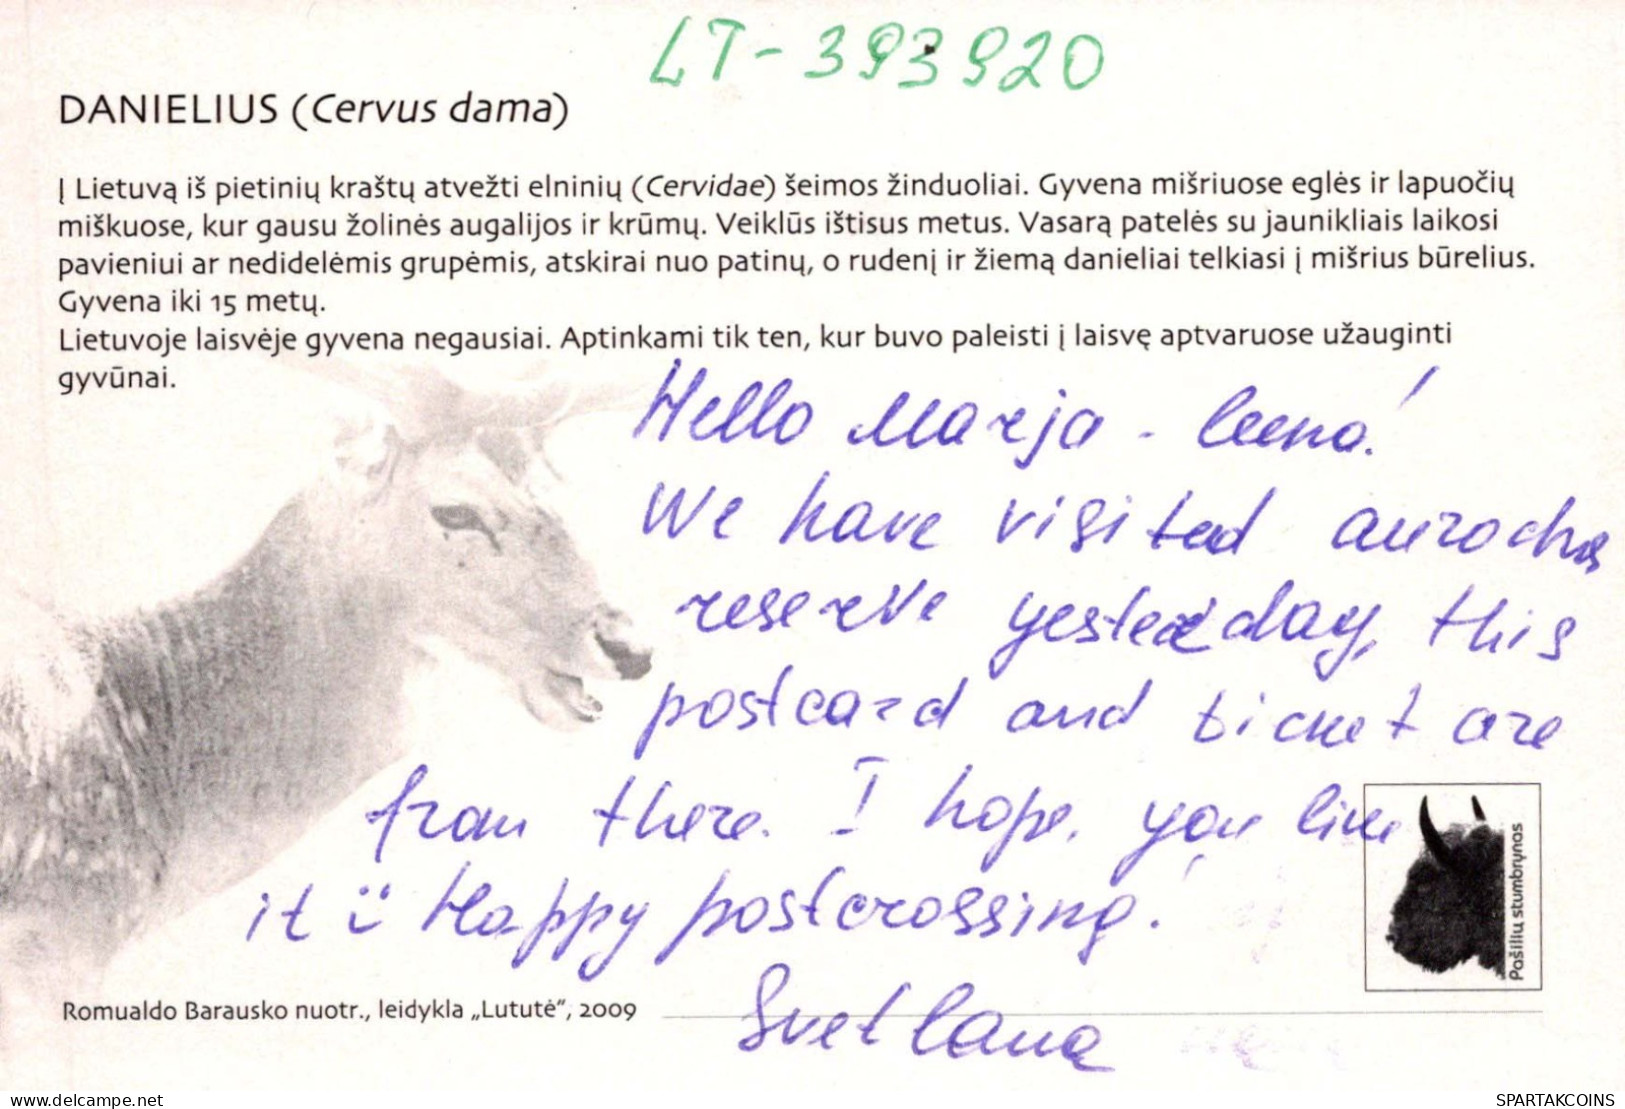 LT-393920
DANIELIUS (Cervus dama)
Į Lietuvą iš pietinių kraštų atvežti elninių (Cervidae) šeimos žinduoliai. Gyvena mišriuose eglės ir lapuočių
miškuose, kur gausu žolinės augalijos ir krūmų. Veiklūs ištisus metus. Vasarą patelės su jaunikliais laikosi
pavieniui ar nedidelėmis grupėmis, atskirai nuo patinų, o rudenį ir žiemą danieliai telkiasi į mišrius būrelius.
Gyvena iki 15 metų.
Lietuvoje laisvėje gyvena negausiai. Aptinkami tik ten, kur buvo paleisti į laisvę aptvaruose užauginti
gyvūnai.
Hello Marja-leena!
We have visited aurochs
reserve yesterday, this
postcard and ticket are
from there. I hope, you like
it :) Happy postcrossing!
Svetlana
Pašilių stumbrynas
Romualdo Barausko nuotr., leidykla „Lututė“, 2009
www.delcampe.net
SPARTAKCOINS